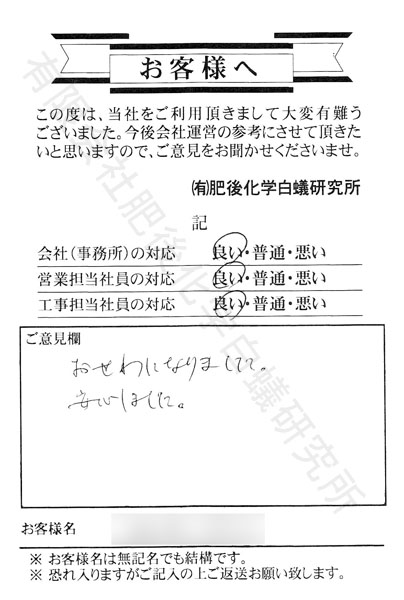 お客様へ
この度は、当社をご利用頂きまして大変有難う
ございました。今後会社運営の参考にさせて頂きた
いと思いますので、ご意見をお聞かせくださいませ。
㈲肥後化学白蟻研究所
記
会社(事務所)の対応 良い・普通・悪い
営業担当社員の対応 良い・普通・悪い
工事担当社員の対応 良い・普通・悪い
ご意見欄
おせわになりました。
安心しました。
お客様名
※ お客様名は無記名でも結構です。
※ 恐れ入りますがご記入の上ご返送お願い致します。
有限会社肥後化学白蟻研究所